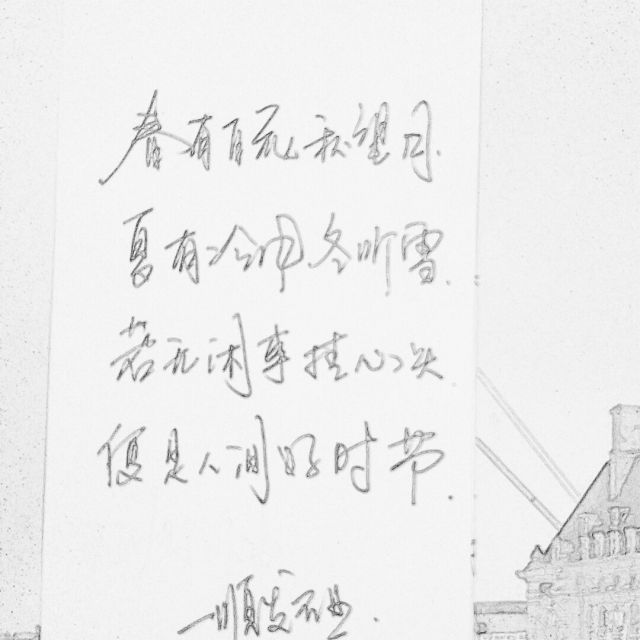 春有百花秋望月.
夏有凉风冬听雪.
若无闲事挂心头.
便是人间好时节.
一顺